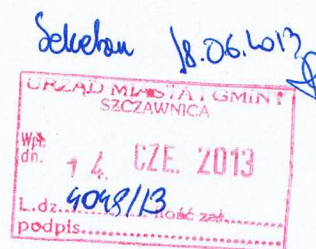 Sekretarz 18.06.2013
URZĄD MIASTA I GMINY
SZCZAWNICA
Wpł.
dn. 14. CZE. 2013
L.dz. 4048/13 ilość zał.
podpis